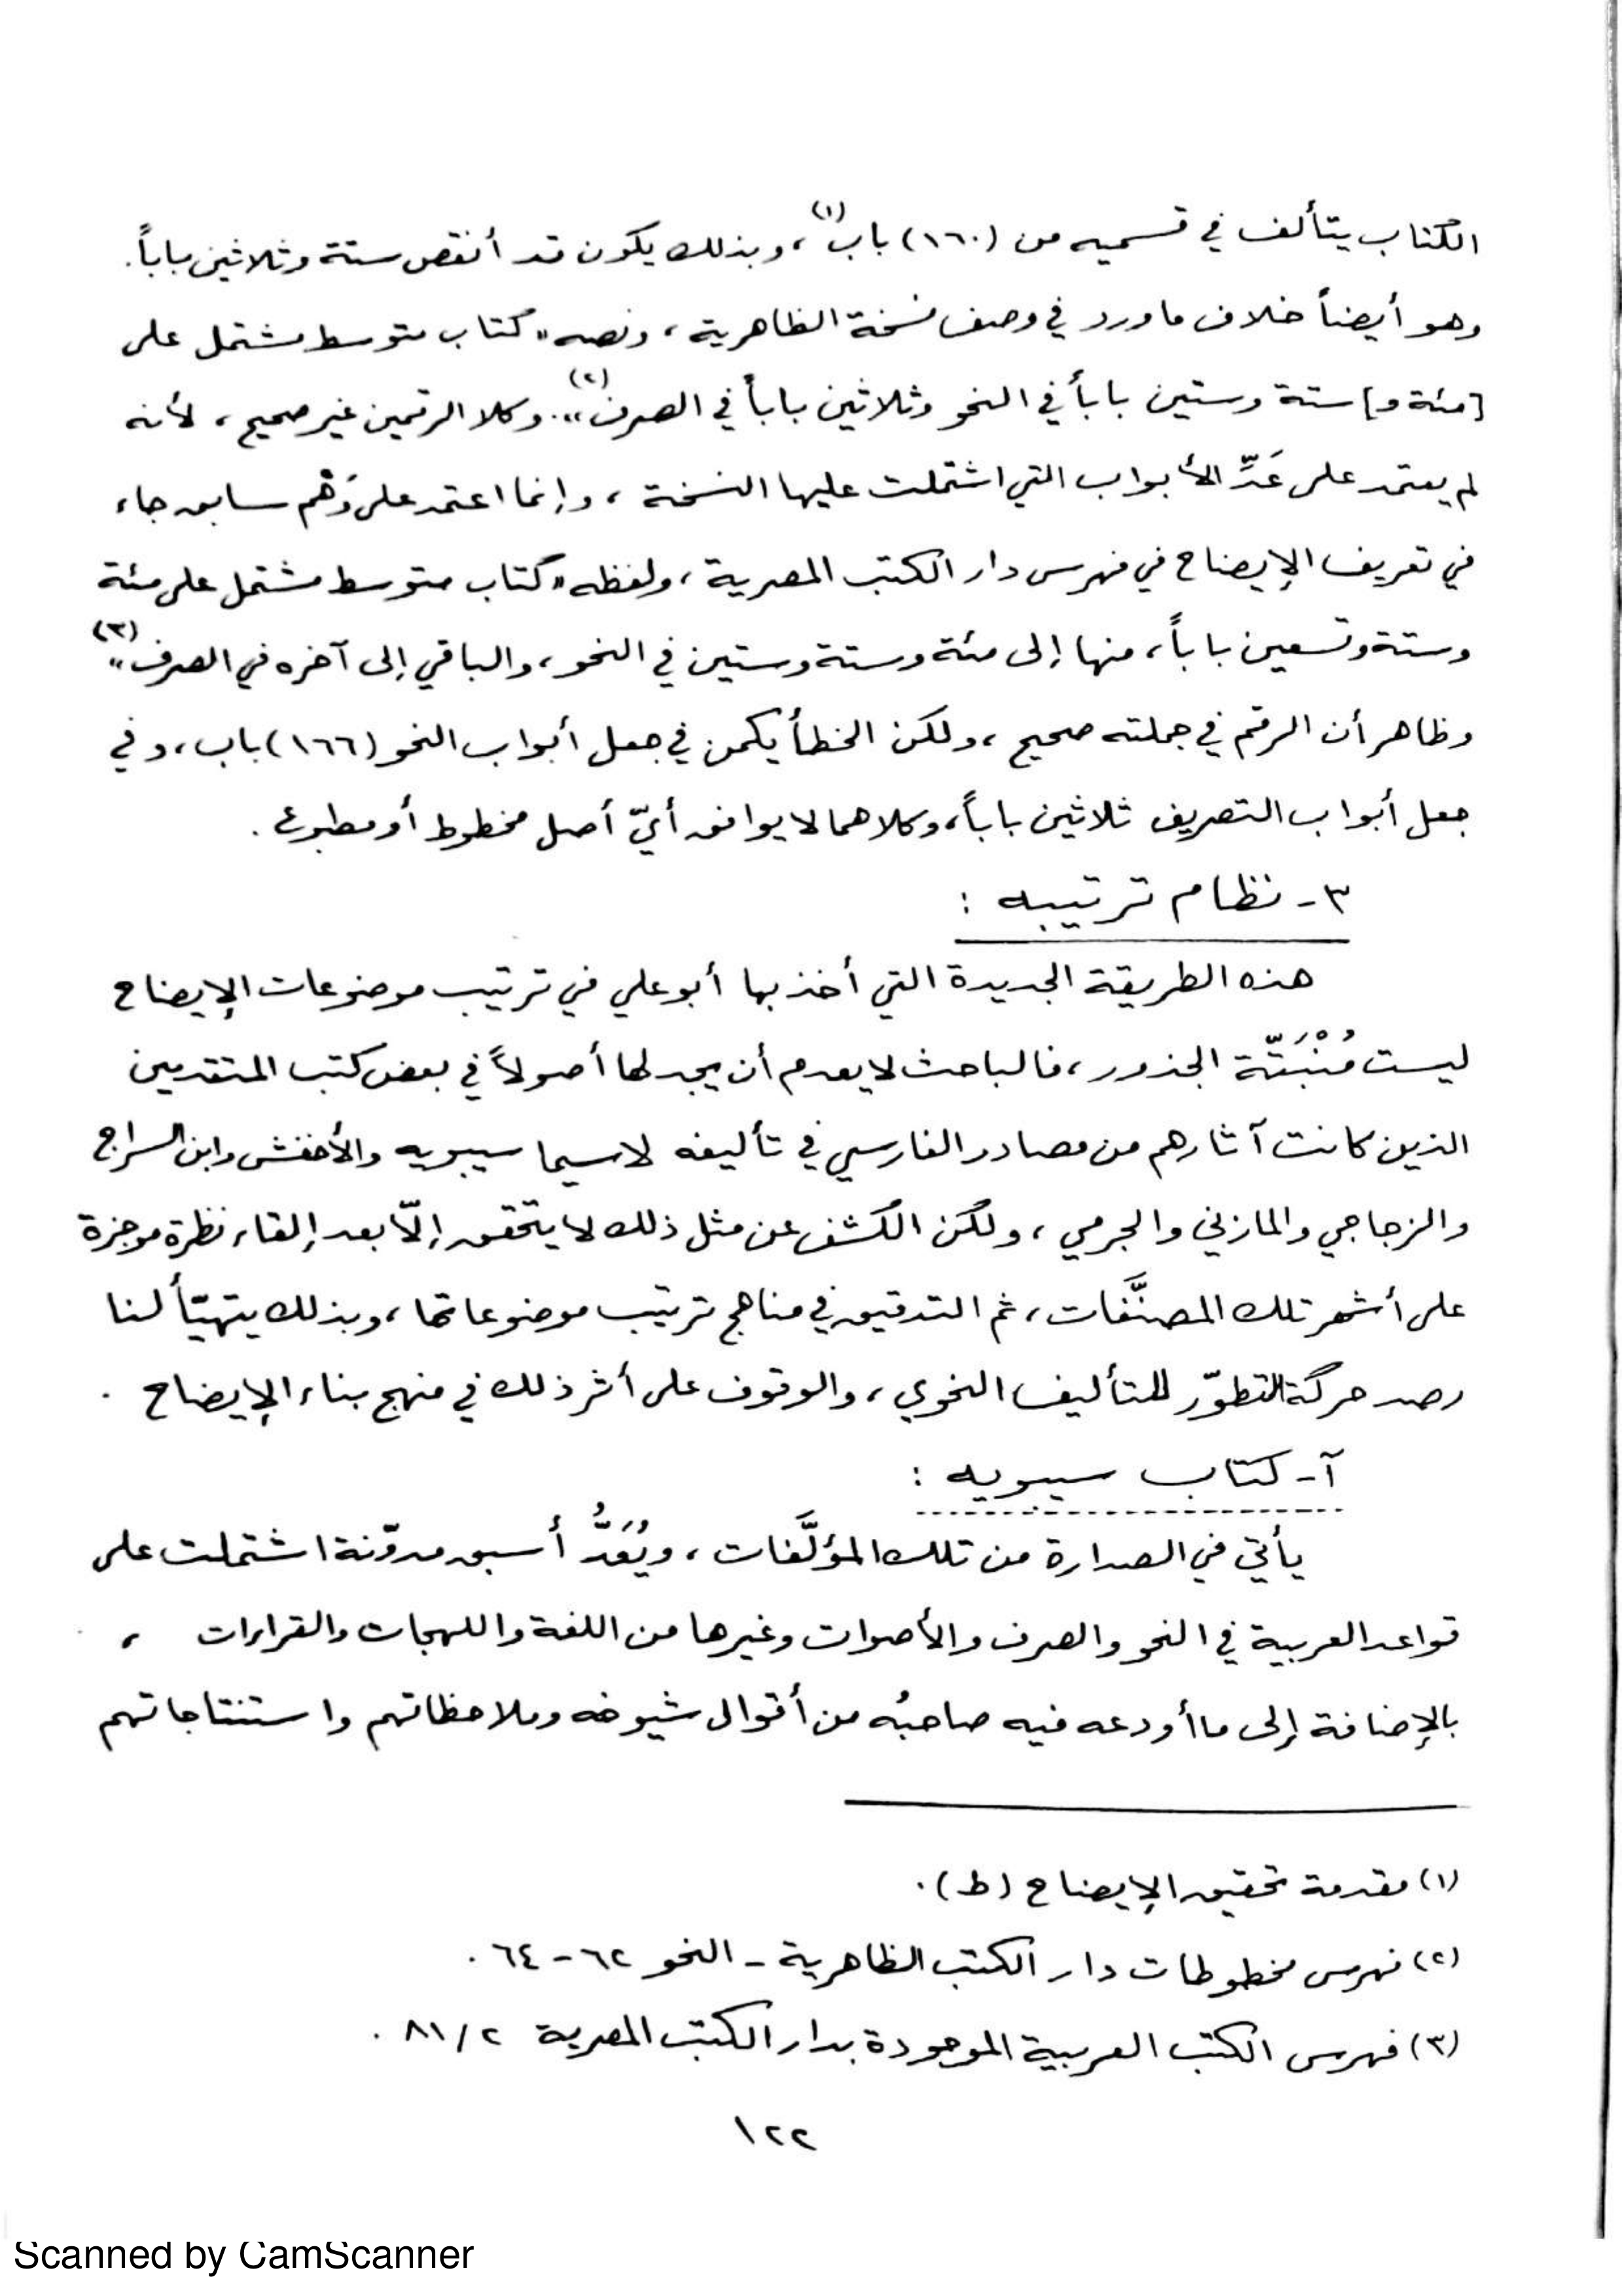 الكتاب يتألف في قسميه من (١٦٠) باب(١)، وبذلك يكون قد أنقص ستة وثلاثين باباً.
وهو أيضاً خلاف ما ورد في وصف نسخة الظاهرية، ونصه «كتاب متوسط مشتمل على
[مئة و] ستة وستين باباً في النحو وثلاثين باباً في الصرف»(٢). وكلا الرقمين غير صحيح، لأنه
لم يعتمد على عَدِّ الأبواب التي اشتملت عليها النسخة، وإنما اعتمد على وَهْم سابق جاء
في تعريف الإيضاح في فهرس دار الكتب المصرية، ولفظه «كتاب متوسط مشتمل على مئة
وستة وتسعين باباً، منها إلى مئة وستة وستين في النحو، والباقي إلى آخره في الصرف»(٣)
وظاهر أن الرقم في جملته صحيح، ولكن الخطأ يكمن في جعل أبواب النحو (١٦٦) باب، وفي
جعل أبواب التصريف ثلاثين باباً، وكلاهما لا يوافق أيّ أصل مخطوط أو مطبوع.
٣- نظام ترتيبه :
هذه الطريقة الجديدة التي أخذ بها أبو علي في ترتيب موضوعات الإيضاح
ليست مُنْبَتّة الجذور، فالباحث لا يعدم أن يجد لها أصولاً في بعض كتب المتقدمين
الذين كانت آثارهم من مصادر الفارسي في تأليفه لاسيما سيبويه والأخفش وابن السراج
والزجاجي والمازني والجرمي، ولكن الكشف عن مثل ذلك لا يتحقق إلّا بعد إلقاء نظرة موجزة
على أشهر تلك المصنَّفات، ثم التدقيق في مناهج ترتيب موضوعاتها، وبذلك يتهيّأ لنا
رصد حركة التطوّر للتأليف النحوي، والوقوف على أثر ذلك في منهج بناء الإيضاح .
آ- كتاب سيبويه :
يأتي في الصدارة من تلك المؤلَّفات، ويُعَدُّ أسبق مدوّنة اشتملت على
قواعد العربية في النحو والصرف والأصوات وغيرها من اللغة واللهجات والقراءات ،
بالإضافة إلى ما أودعه فيه صاحبُه من أقوال شيوخه وملاحظاتهم واستنتاجاتهم
(١) مقدمة تحقيق الإيضاح (ط).
(٢) فهرس مخطوطات دار الكتب الظاهرية - النحو ٦٢ - ٦٤ .
(٣) فهرس الكتب العربية الموجودة بدار الكتب المصرية ٢/ ٨١ .
١٢٢
Scanned by CamScanner